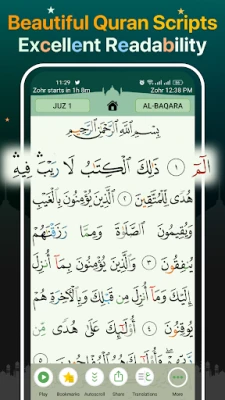 Beautiful Quran Scripts
Excellent Readability
11:29
Zohr starts in 1h 8m
Zohr 12:38 PM
JUZ 1
AL-BAQARA
بِسْمِ اللَّهِ الرَّحْمَٰنِ الرَّحِيمِ
الٓمٓ ١ ذَٰلِكَ الْكِتَٰبُ لَا رَيْبَ ۛ فِيهِ ۛ
هُدًى لِّلْمُتَّقِينَ ٢ الَّذِينَ يُؤْمِنُونَ بِالْغَيْبِ
وَيُقِيمُونَ الصَّلَوٰةَ وَمِمَّا رَزَقْنَٰهُمْ
يُنفِقُونَ ٣ وَالَّذِينَ يُؤْمِنُونَ بِمَآ أُنزِلَ
إِلَيْكَ وَمَآ أُنزِلَ مِن قَبْلِكَ وَبِالْءَاخِرَةِ هُمْ
يُوقِنُونَ ٤ أُو۟لَٰٓئِكَ عَلَىٰ هُدًى مِّن
Play
Bookmarks
Autoscroll
Share
Translations
More